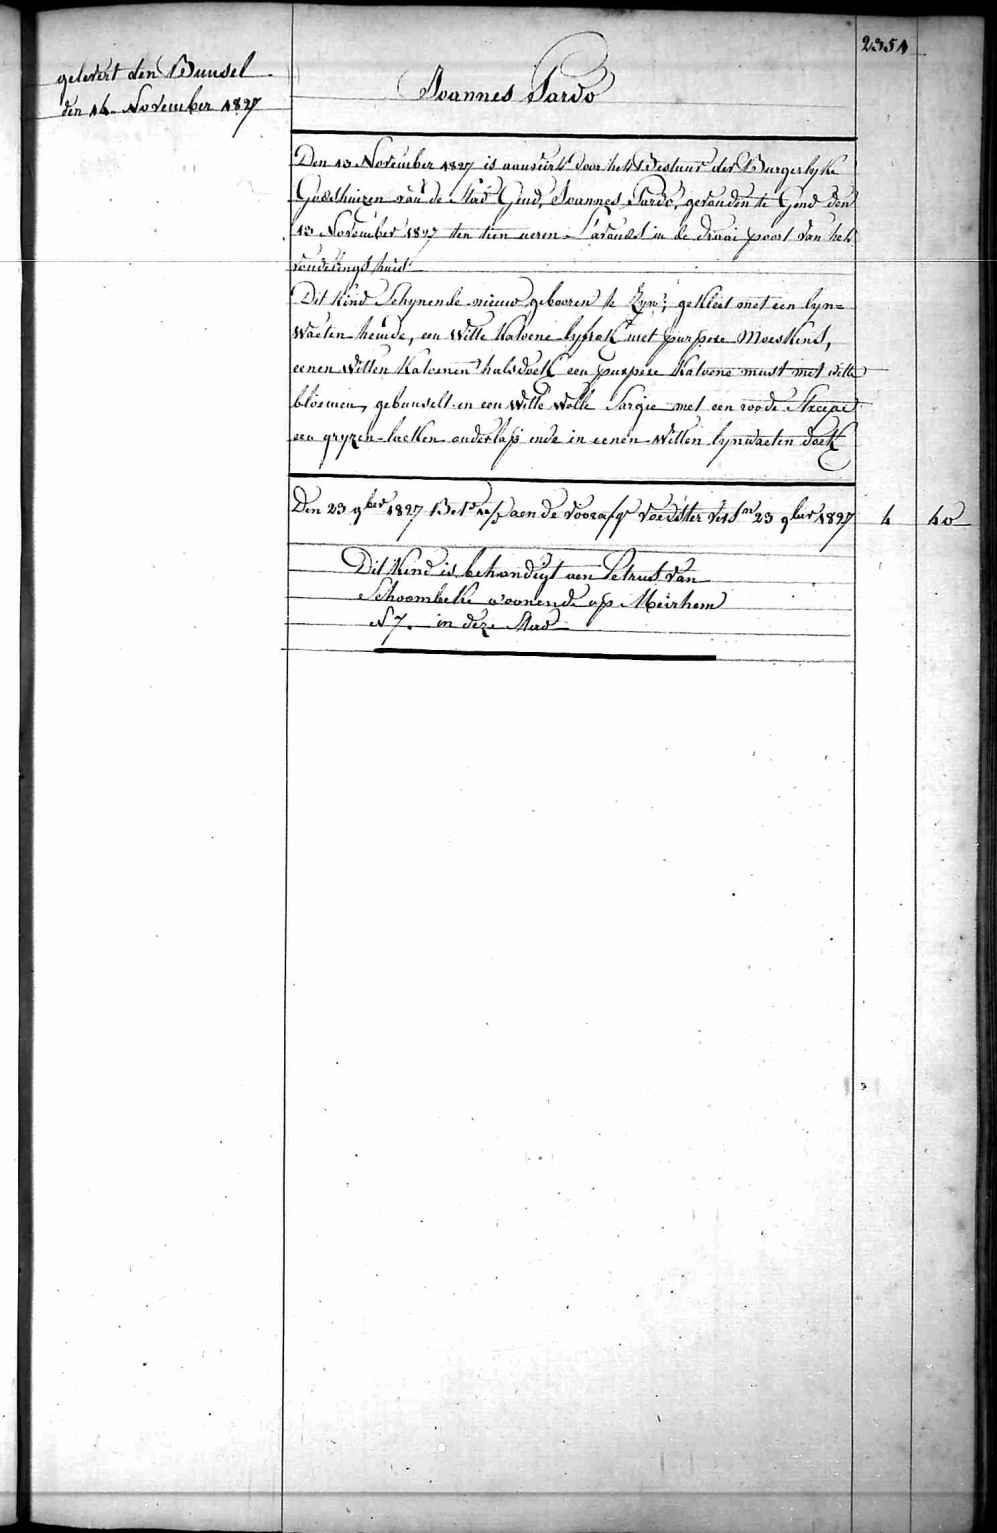 2351
gelevert den Bunsel
den 14 November 1827
Joannes Pardo
Den 13 November 1827 is aanveirt door het Bestuur der Burgerlyke
Godshuizen van de Stad Gend, Joannes Pardo, gevonden te Gend den
13 November 1827 ten tien ueren s'avonds in de draai poort van het
vondelings huis.
Dit kind schynende nieuw gebooren te zyn; gekleet met een lyn=
waeten hemde, een witte katoene lyfrok met purpere Moeskens,
eenen witten katoenen halsdoek een purpere katoene muts met witte
bloemen, gebunselt in een witte wolle Sargie met een roode Streepe
een gryzen laeken onderlap ende in eenen witten lynwaeten doek
Den 23 9ber 1827 aen de voorafg voedster 23 9ber 1827 4 40
Dit kind is behandigt aen Petrus van
Schoombeke woonende op Meirhem
N 7. in deze Stad